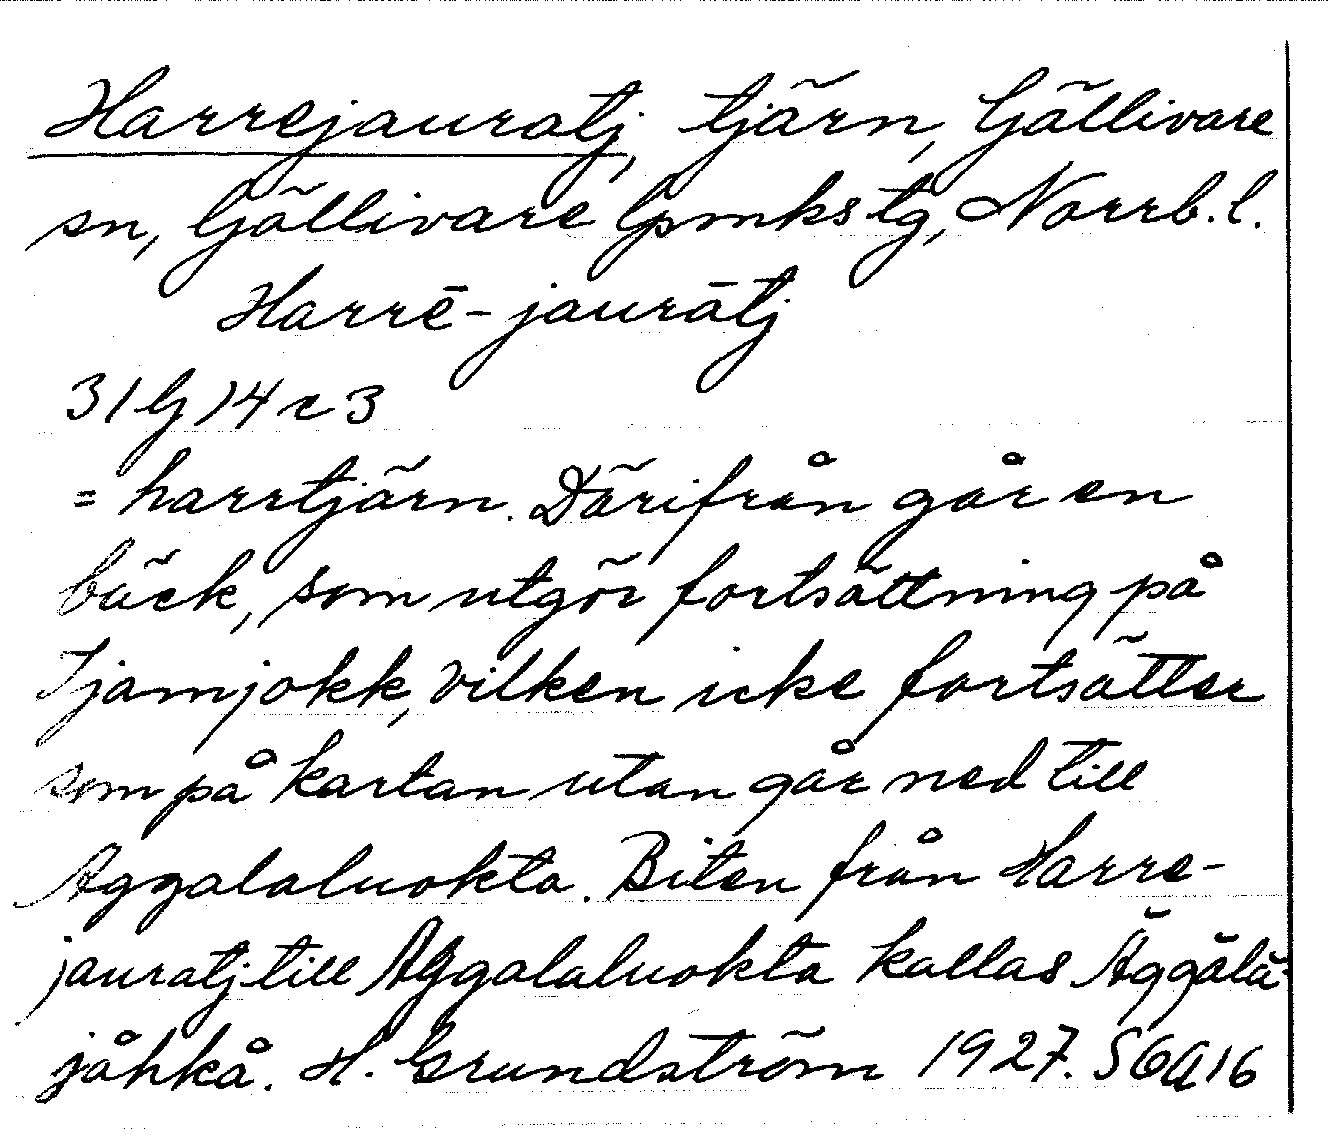 Harrejauratj, tjärn, Gällivare
sn, Gällivare Gmks tg, Norrb. l.
Harrē-jaurātj
31 G 14 c 3
= harrtjärn. Därifrån går en
bäck, som utgör fortsättning på
Tjamjokk, vilken icke fortsätter
som på kartan utan går ned till
Aggalaluokta. Biten från Harre-
jauratj till Aggalaluokta kallas Äggălă-
jåhkå. H. Grundström 1927. S 6 a 16